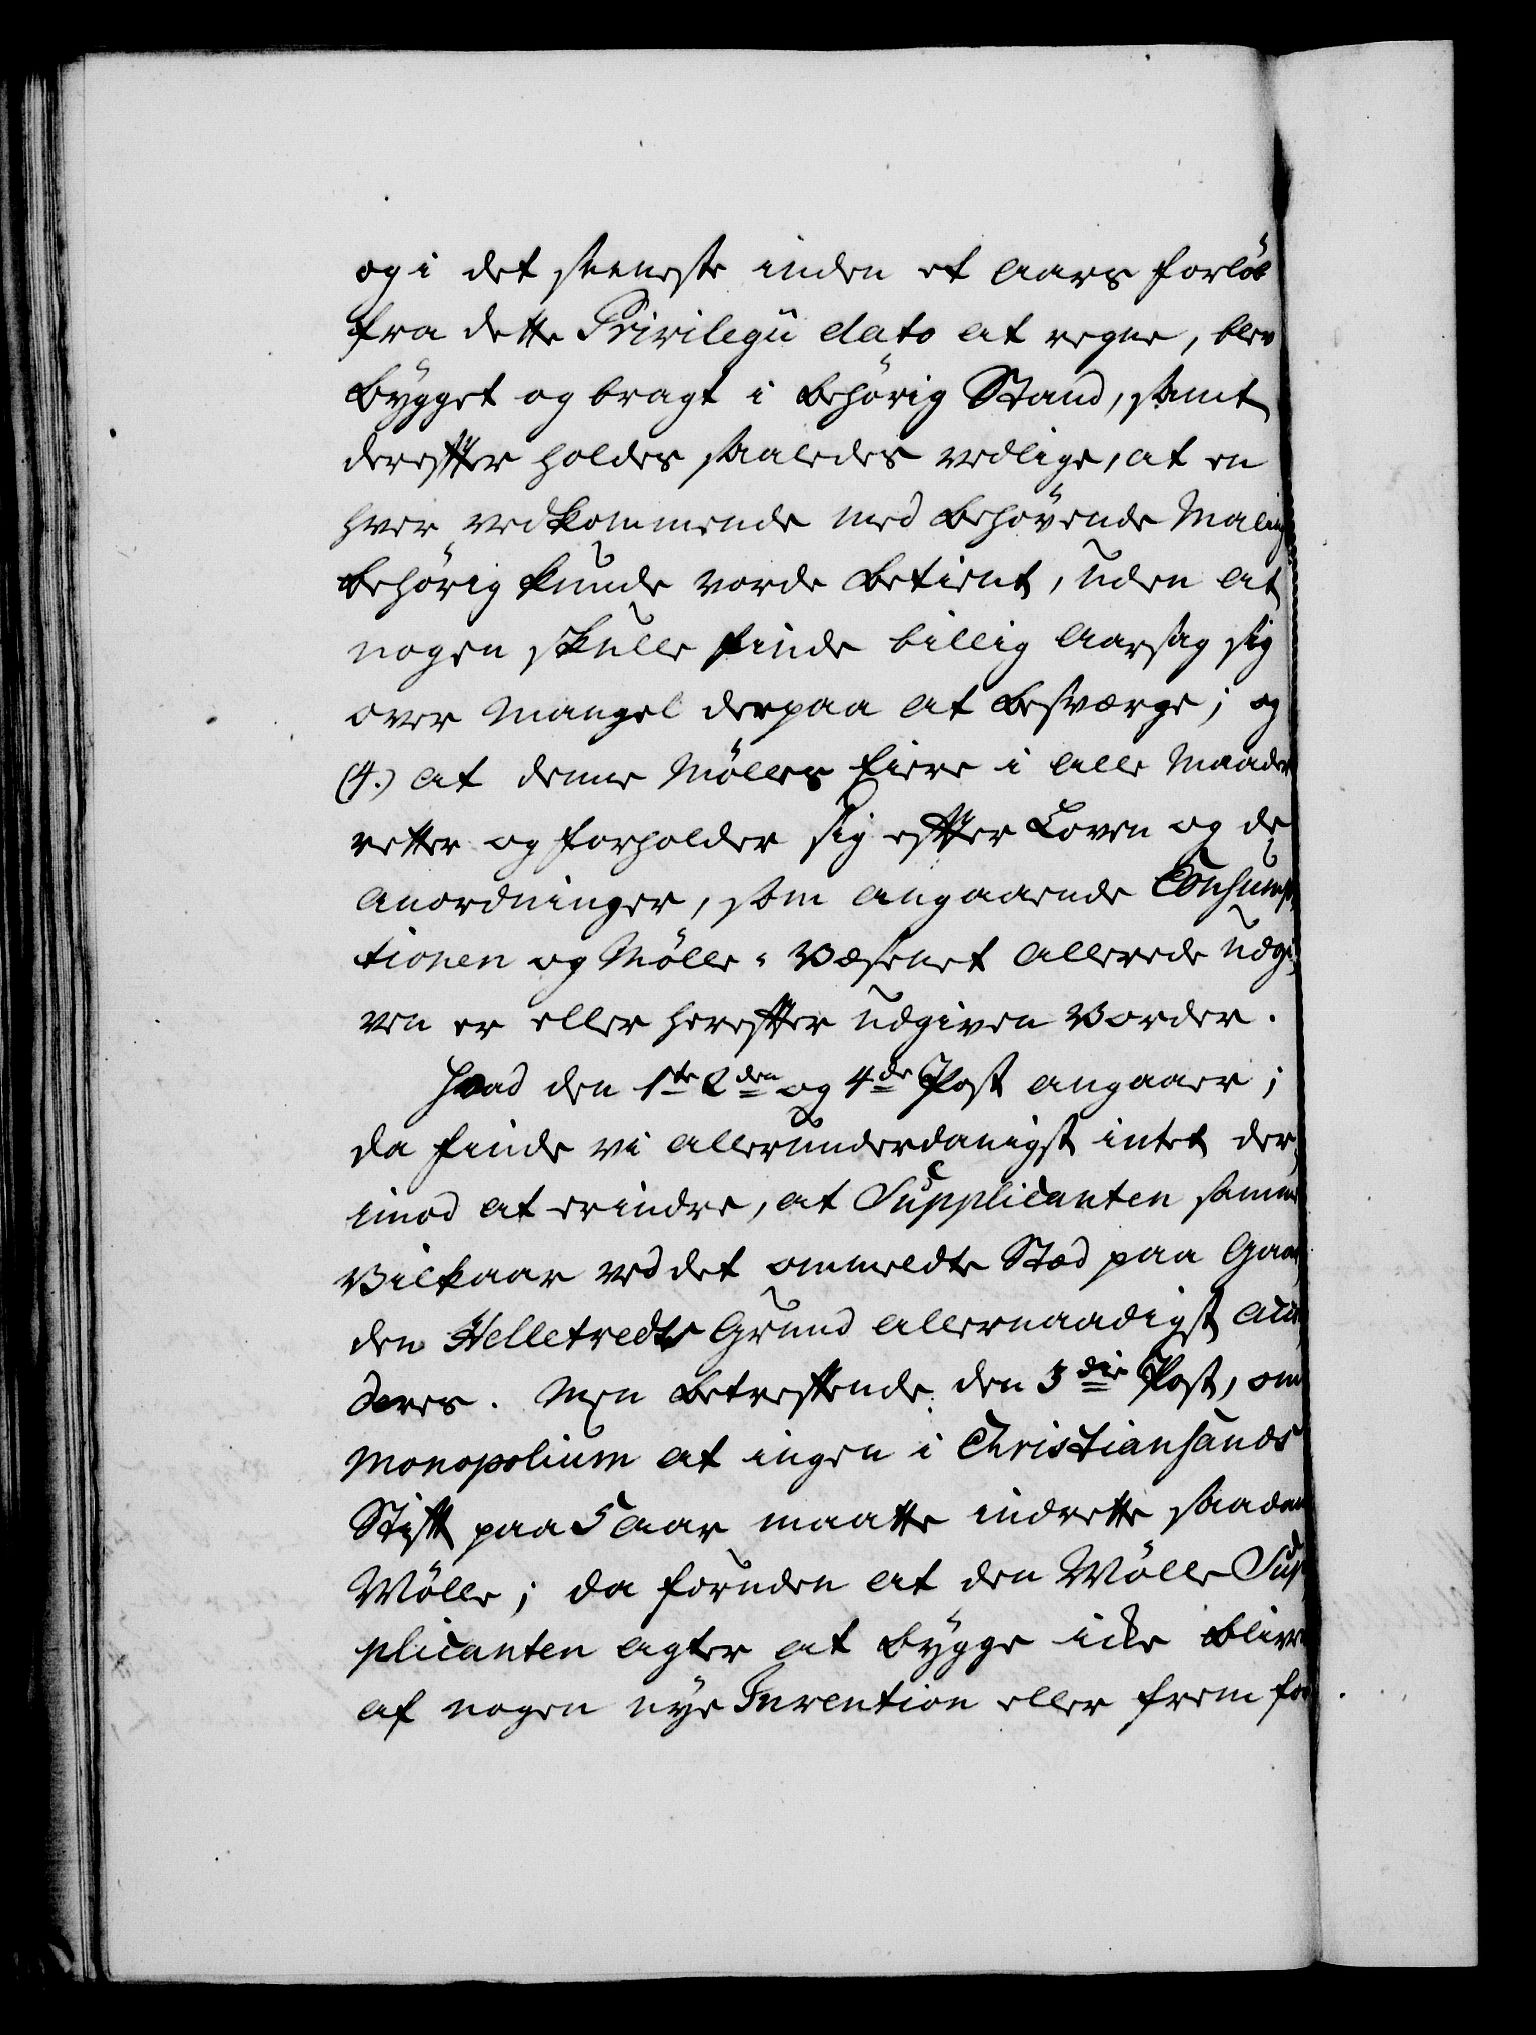 og i det seeneste inden et Aars forløb
fra dette Privilegii dato at regne, blev
bygget og bragt i behörig Stand, samt
derefter holdes saaledes vedlige, at en
hver vedkommende med behövende Maling
behörig kunde vorde betient, uden at
nogen skulle finde billig Aarsag sig
over Mangel derpaa at besværge; og
(4.) at denne Mølles Eiere i alle Maader
retter og forholder sig efter Loven og de
Anordninger, som angaaende Consump,
tionen og Mölle-Væsenet allerede udgi,
ven er eller herefter udgiven vorder.
Hvad den 1ste 2den og 4de Post angaaer;
da finde vi allerunderdanigst intet der,
imod at erindre, at Supplicanten samme
Vilkaar ved det ommeldte Stæd paa Gaar,
den Helletreds Grund allernaadigst accor,
deres. Men betreffende den 3die Post, om
Monopolium at ingen i Christiansands
Stift paa 5 Aar maatte indrette saadan
Mölle; da foruden at den Mölle Sup,
plicanten agter at bygge icke bliver
af nogen nye Invention eller frem for